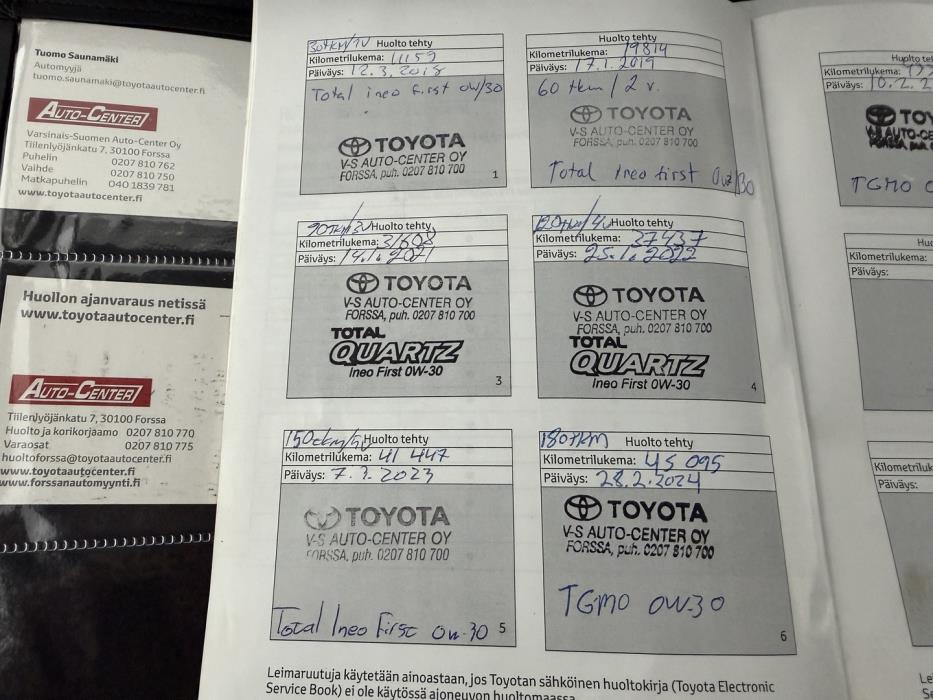 Tuomo Saunamäki
Automyyjä
tuomo.saunamaki@toyotaautocenter.fi
AUTO-CENTER
Varsinais-Suomen Auto-Center Oy
Tiilenlyöjänkatu 7, 30100 Forssa
Puhelin 0207 810 762
Vaihde 0207 810 750
Matkapuhelin 040 1839 781
www.toyotaautocenter.fi
Huollon ajanvaraus netissä
www.toyotaautocenter.fi
AUTO-CENTER
Tiilenlyöjänkatu 7, 30100 Forssa
Huolto ja korikorjaamo 0207 810 770
Varaosat 0207 810 775
huoltoforssa@toyotaautocenter.fi
www.toyotaautocenter.fi
www.forssanautomyynti.fi
30tkm/1v Huolto tehty
Kilometrilukema: 11159
Päiväys: 12.3.2018
Total ineo first 0w/30
TOYOTA
V-S AUTO-CENTER OY
FORSSA, puh. 0207 810 700
1
Huolto tehty
Kilometrilukema: 19814
Päiväys: 17.1.2019
60 tkm / 2 v.
TOYOTA
V-S AUTO-CENTER OY
FORSSA, puh. 0207 810 700
Total Ineo first 0w/30
90tkm/3v Huolto tehty
Kilometrilukema: 31608
Päiväys: 14.1.2021
TOYOTA
V-S AUTO-CENTER OY
FORSSA, puh. 0207 810 700
TOTAL
QUARTZ
Ineo First 0W-30
3
120tkm/4v Huolto tehty
Kilometrilukema: 37437
Päiväys: 25.1.2022
TOYOTA
V-S AUTO-CENTER OY
FORSSA, puh. 0207 810 700
TOTAL
QUARTZ
Ineo First 0W-30
4
Huolto tehty
Kilometrilukema: 41 447
Päiväys: 7.3.2023
TOYOTA
V-S AUTO-CENTER OY
FORSSA, puh. 0207 810 700
Total Ineo First 0w-30
5
180tkm Huolto tehty
Kilometrilukema: 45 095
Päiväys: 28.2.2024
TOYOTA
V-S AUTO-CENTER OY
FORSSA, puh. 0207 810 700
TGMO 0W-30
6
Leimaruutuja käytetään ainoastaan, jos Toyotan sähköinen huoltokirja (Toyota Electronic
Service Book) ei ole käytössä ajoneuvon huoltomaassa.
Kilometrilukema:
Päiväys:
TGMO
Kilometrilukema:
Päiväys:
Päiväys: